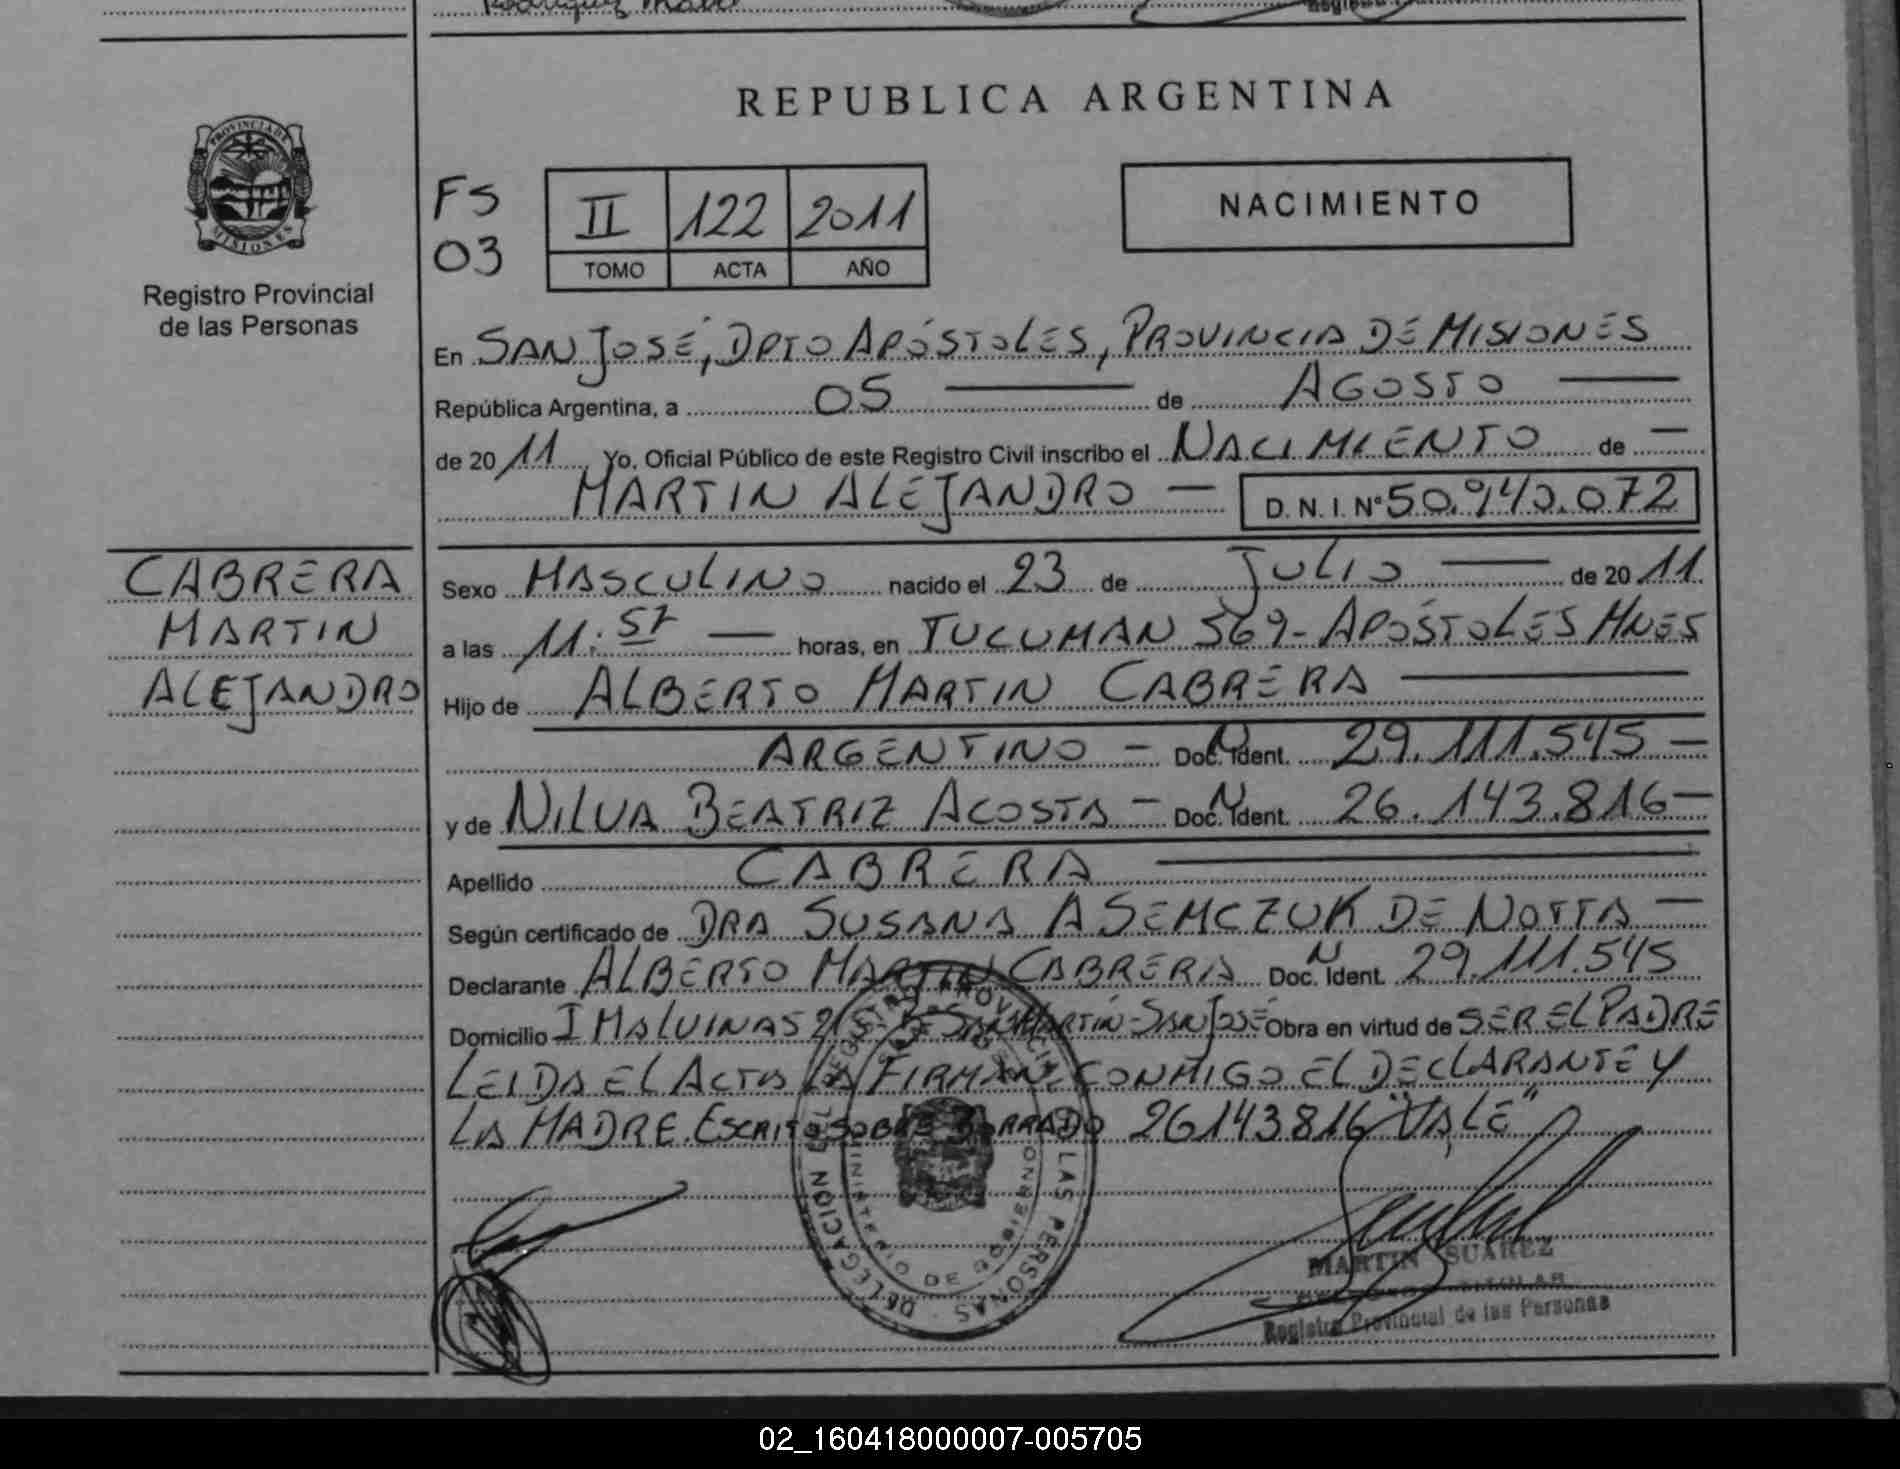 Rodriguez
REPUBLICA ARGENTINA
PROVINCIA DE
MISIONES
Registro Provincial
de las Personas
FS
03
II 122 2011
TOMO ACTA AÑO
NACIMIENTO
En SAN JOSÉ, DPTO APÓSTOLES, PROVINCIA DE MISIONES
República Argentina, a 05 de AGOSTO
de 2011 Yo, Oficial Público de este Registro Civil inscribo el NACIMIENTO de
MARTIN ALEJANDRO D. N. I. Nº 50.940.072
CABRERA
MARTIN
ALEJANDRO
Sexo MASCULINO nacido el 23 de JULIO de 2011
a las 11:57 horas, en TUCUMAN 569-APÓSTOLES MNES
Hijo de ALBERTO MARTIN CABRERA
ARGENTINO - Doc. N Ident. 29.111.545
y de NILVA BEATRIZ ACOSTA - Doc. N Ident. 26.143.816
Apellido CABRERA
Según certificado de DRA SUSANA A SEMCZUK DE NOTTA
Declarante ALBERTO MARTIN CABRERA Doc. N Ident. 29.111.545
Domicilio I MALVINAS SAN MARTIN-SAN JOSÉ Obra en virtud de SER EL PADRE
LEIDA EL ACTA LA FIRMAN CONMIGO EL DECLARANTE Y
LA MADRE. ESCRITO SOBRE BORRADO 26143816 "VALE"
REGISTRO PROVINCIAL DE LAS PERSONAS
DELEGACION
MINISTERIO DE GOBIERNO
MARTIN SUAREZ
Registro Provincial de las Personas
02_160418000007-005705